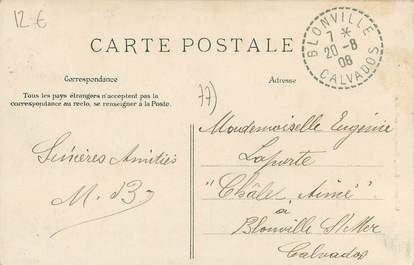 12 €
CARTE POSTALE
BLONVILLE
7 *
20-8
08
CALVADOS
Correspondance
Adresse
Tous les pays étrangers n'acceptent pas la
correspondance au recto, se renseigner à la Poste.
77)
Mademoiselle Eugénie
Laporte
"Châlet Aimé"
à
Blonville S/ Mer
Calvados
Sincères Amitiés
M. B